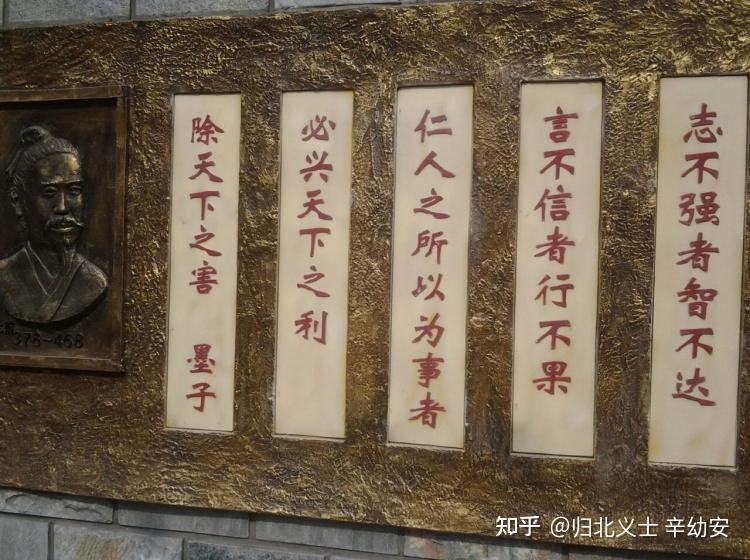 志不强者智不达
言不信者行不果
仁人之所以为事者
必兴天下之利
除天下之害 墨子
376~468
知乎 @归北义士 辛幼安